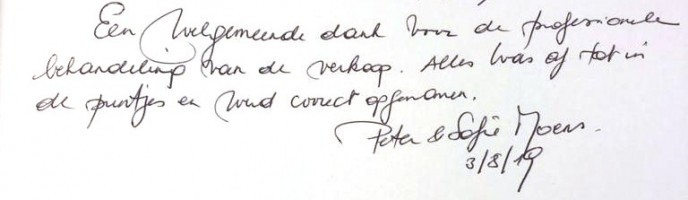 Een welgemeende dank voor de professionele
behandeling van de verkoop. Alles was af tot in
de puntjes en werd correct opgenomen.
Peter & Sofie Moens.
3/8/19